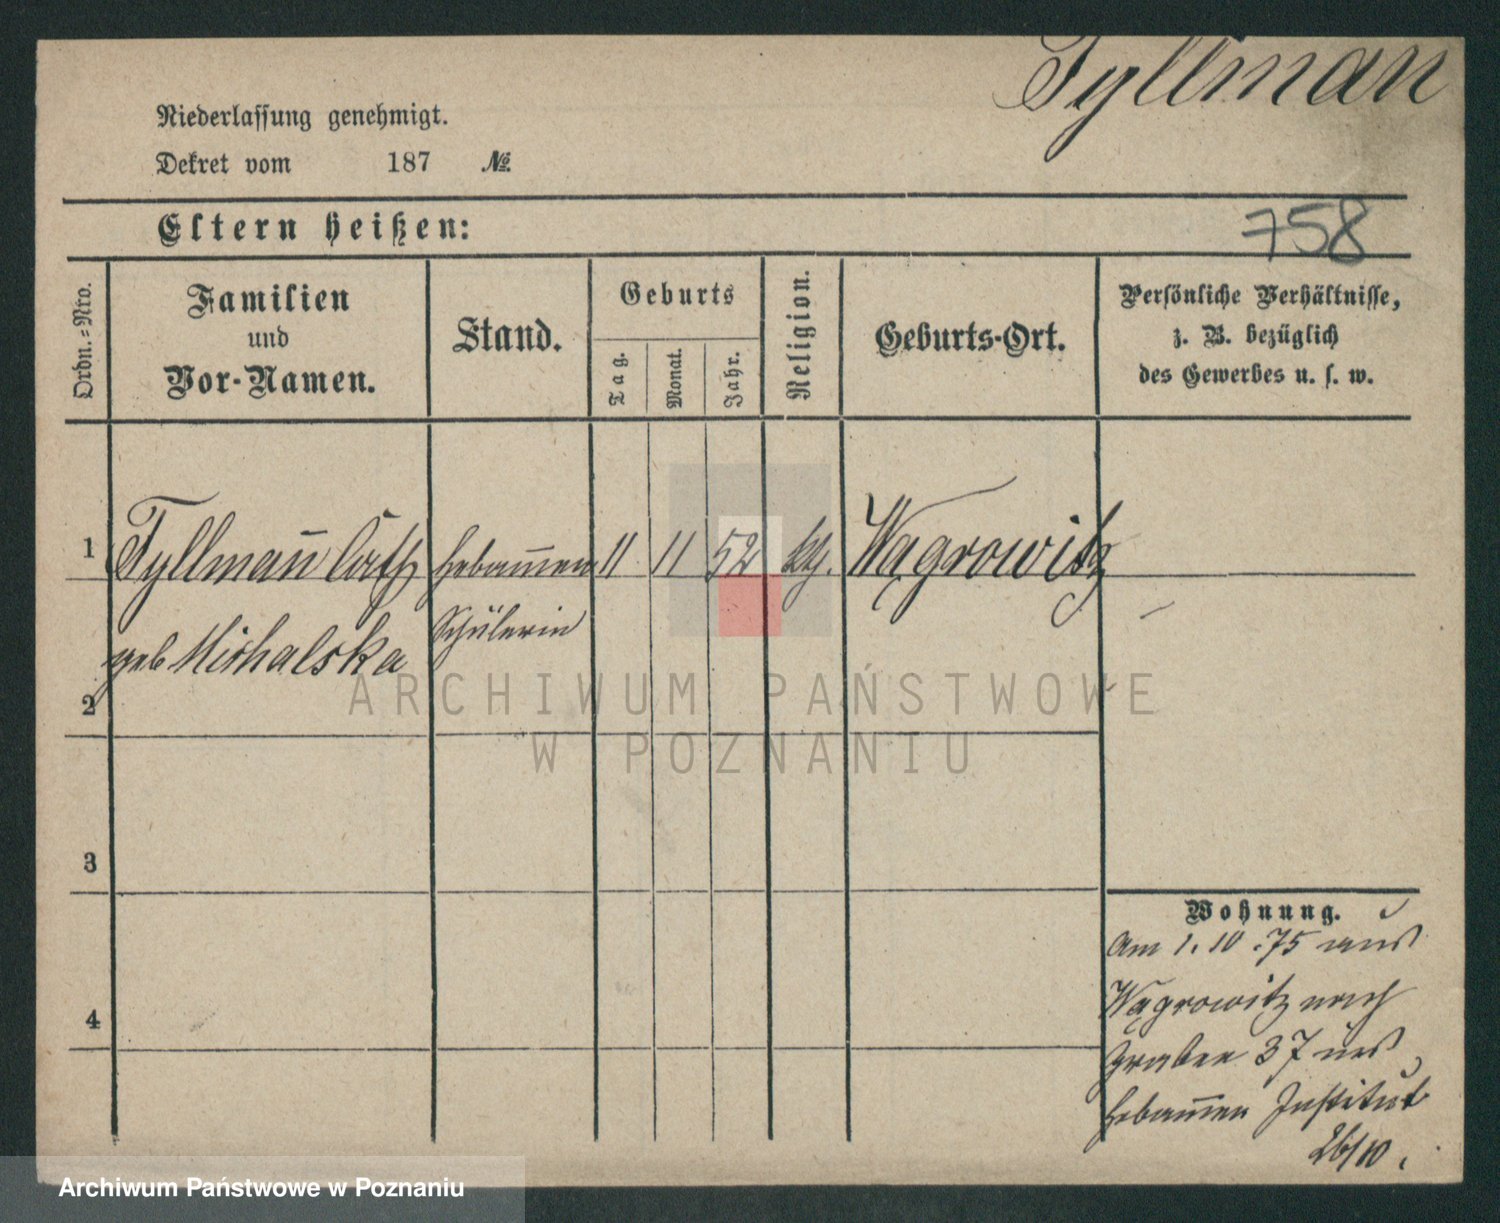 Tyllman
Niederlassung genehmigt.
Dekret vom 187 №
Eltern heißen:
758
Ordn.=Nro.
Familien
und
Vor-Namen.
Stand.
Geburts
Tag.
Monat.
Jahr.
Religion.
Geburts-Ort.
Persönliche Verhältnisse,
z. B. bezüglich
des Gewerbes u. s. w.
1 Tyllman̄ Cath Hebam̄en 11 11 52 kth. Wągrowitz
geb Mishalska Schülerin
2
3
4
Wohnung.
Am 1. 10. 75 aus
Wągrowitz nach
Graben 37 ins
Hebam̄en Institut
26/10.
ARCHIWUM PAŃSTWOWE
W POZNANIU
Archiwum Państwowe w Poznaniu